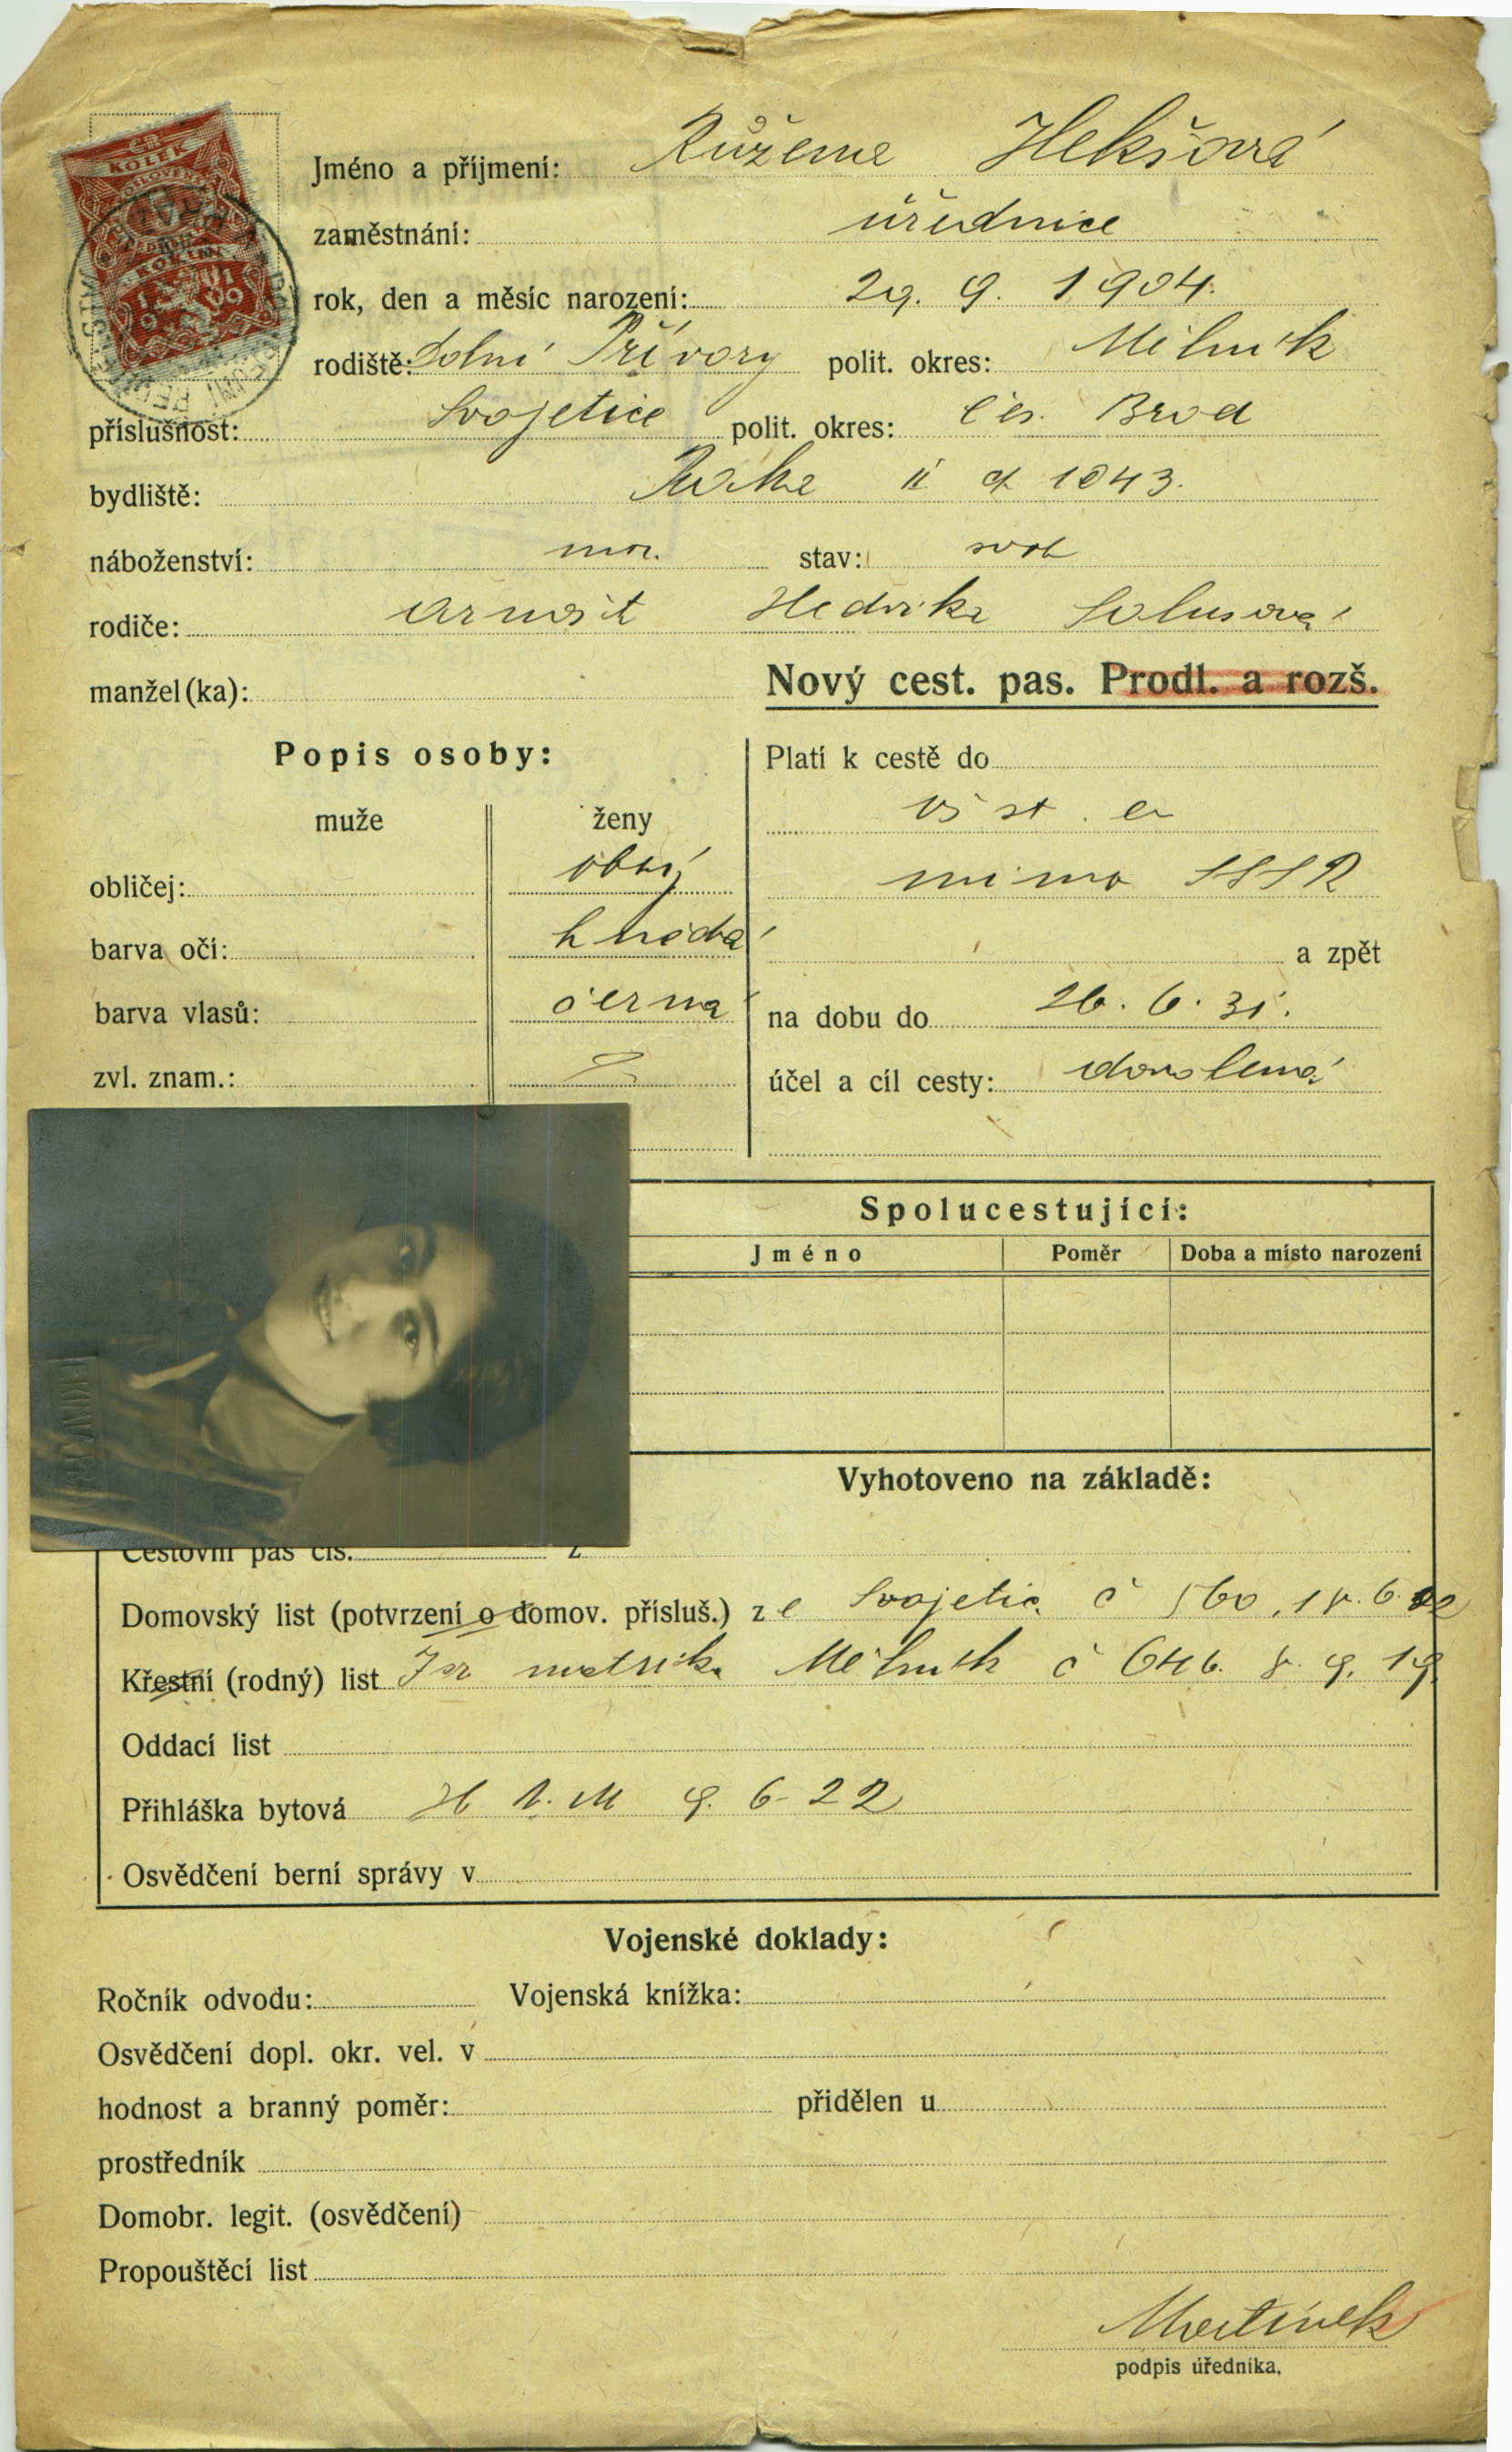 ČR
KOLEK
Jméno a příjmení: Růžena Hekšová
zaměstnání: úřednice
rok, den a měsíc narození: 29. 9. 1904.
rodiště: Dolní Přívory polit. okres: Mělník
příslušnost: Svojetice polit. okres: Čes. Brod
bydliště: II 1043.
náboženství: stav: svob
rodiče: Arnošt Hedvika Solusová
manžel(ka): Nový cest. pas. Prodl. a rozš.
Popis osoby: Platí k cestě do
muže ženy vš st. e
obličej: obví mimo SSSR
barva očí: hnědá a zpět
barva vlasů: černá na dobu do 26. 6. 31.
zvl. znam.: účel a cíl cesty: dovolená
Spolucestující:
Jméno Poměr Doba a místo narození
Vyhotoveno na základě:
Cestovní pas čís. z
Domovský list (potvrzení o domov. přísluš.) ze Svojetic č 560, 6.
Křestní (rodný) list Isr matrik. Mělník č 646. 8. 9. 19
Oddací list
Přihláška bytová 9. 6-22
Osvědčení berní správy v
Vojenské doklady:
Ročník odvodu: Vojenská knížka:
Osvědčení dopl. okr. vel. v
hodnost a branný poměr: přidělen u
prostředník
Domobr. legit. (osvědčení)
Propouštěcí list
Martínek
podpis úředníka.